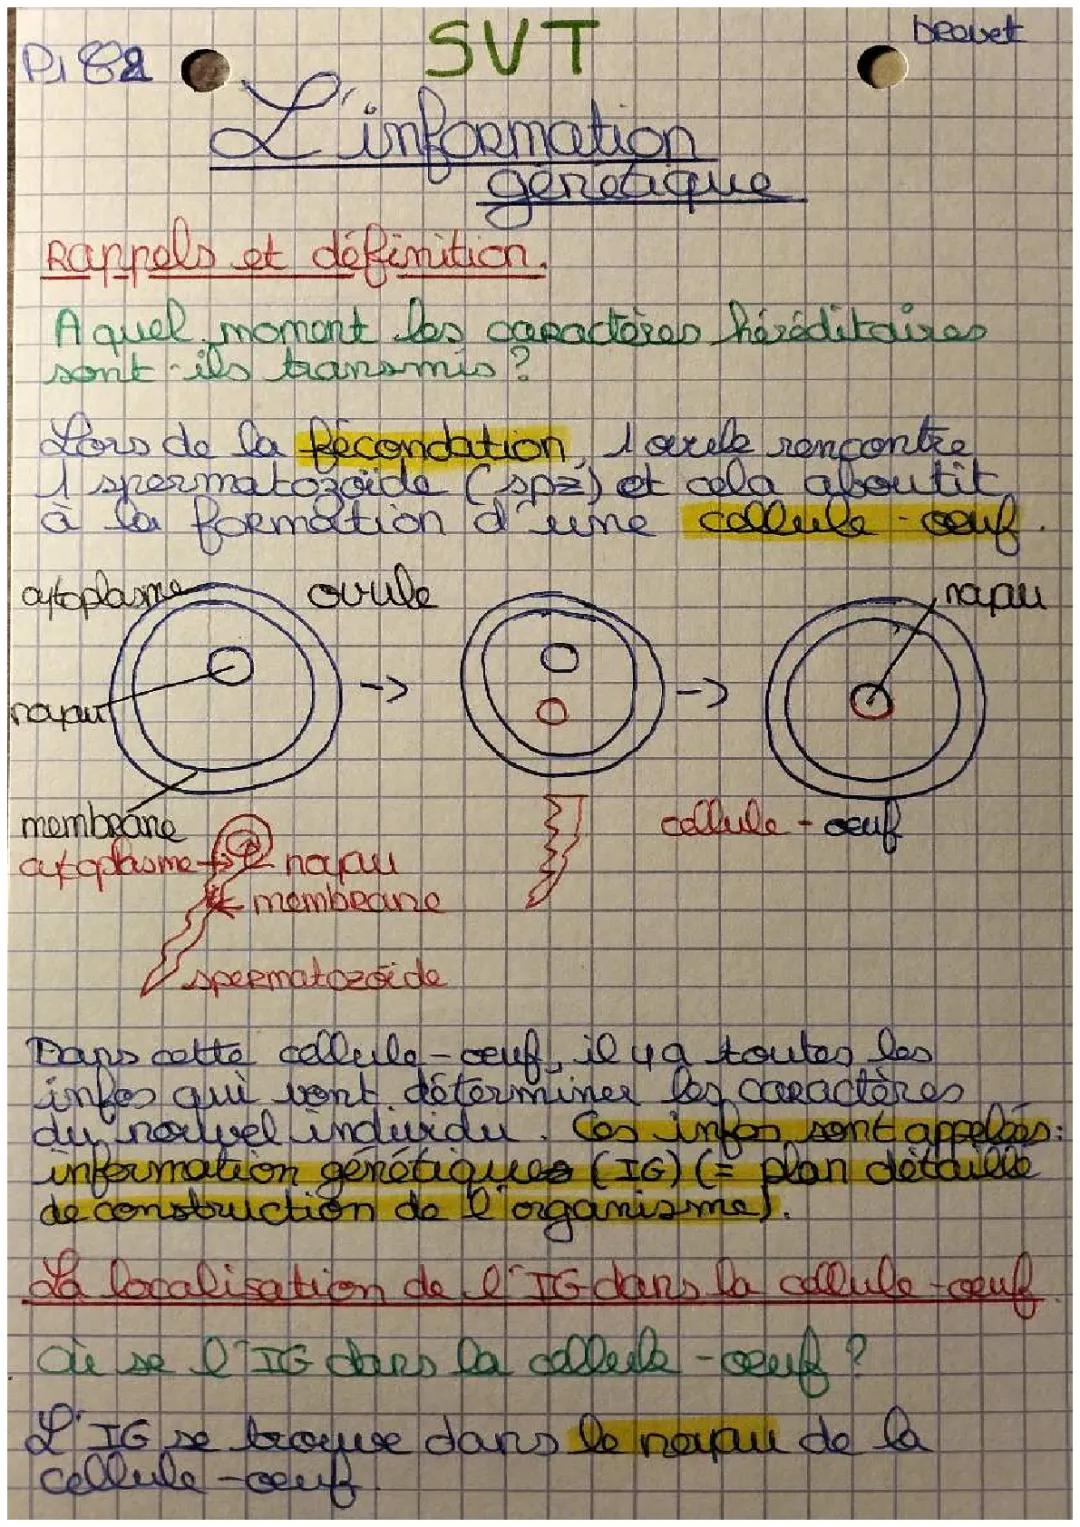 SVT
brevet
L'information
génétique
Rappels et définition.
A quel moment les caractères héréditaires
sont-ils transmis ?
Lors de la fécondation, 1 ovule rencontre
1 spermatozoïde (spz) et cela aboutit
à la formation d'une cellule-oeuf.
cytoplasme ovule noyau
noyau
-> ->
membrane cellule-oeuf
cytoplasme noyau
membrane
spermatozoïde
Dans cette cellule-oeuf, il y a toutes les
infos qui vont déterminer les caractères
du nouvel individu. Ces infos sont appelées:
information génétiques (IG) (= plan détaillé
de construction de l'organisme).
La localisation de l'IG dans la cellule-oeuf
Où se l'IG dans la cellule-oeuf ?
L'IG se trouve dans le noyau de la
cellule-oeuf.